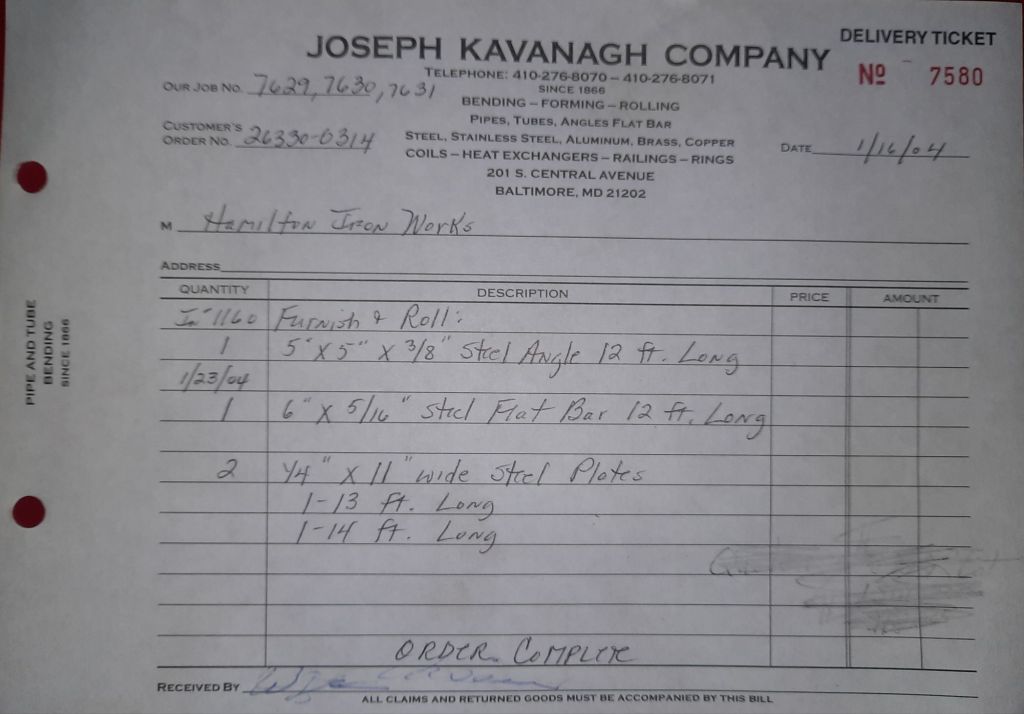 DELIVERY TICKET
JOSEPH KAVANAGH COMPANY
Nº 7580
TELEPHONE: 410-276-8070 – 410-276-8071
SINCE 1866
OUR JOB NO. 7629, 7630, 7631
BENDING – FORMING – ROLLING
PIPES, TUBES, ANGLES FLAT BAR
CUSTOMER'S
ORDER NO. 26330-0314
STEEL, STAINLESS STEEL, ALUMINUM, BRASS, COPPER
DATE 1/16/04
COILS – HEAT EXCHANGERS – RAILINGS – RINGS
201 S. CENTRAL AVENUE
BALTIMORE, MD 21202
M Hamilton Iron Works
ADDRESS
QUANTITY DESCRIPTION PRICE AMOUNT
1160 Furnish & Roll:
1 5" X 5" X 3/8" Steel Angle 12 ft. Long
1/23/04
1 6" X 5/16" Steel Flat Bar 12 ft. Long
2 1/4" X 11" wide Steel Plates
1-13 ft. Long
1-14 ft. Long
ORDER COMPLETE
RECEIVED BY
ALL CLAIMS AND RETURNED GOODS MUST BE ACCOMPANIED BY THIS BILL
PIPE AND TUBE
BENDING
SINCE 1866